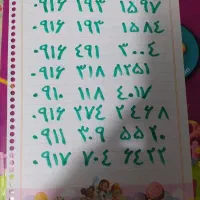 ۰۹۱۶ ۱۹۳ ۱۵۹۷
۰۹۱۶ ۱۹۳ ۱۵۸۴
۰۹۱۶ ۴۹۱ ۳۰۰۴
۰۹۱۶ ۳۱۸ ۸۲۵۱
۰۹۱۰ ۱۱۸ ۴۰۱۷
۰۹۱۶ ۲۷۴ ۲۴۶۸
۰۹۱۱ ۳۰۹ ۵۵۲۰
۰۹۱۷ ۷۰۴ ۶۴۲۲